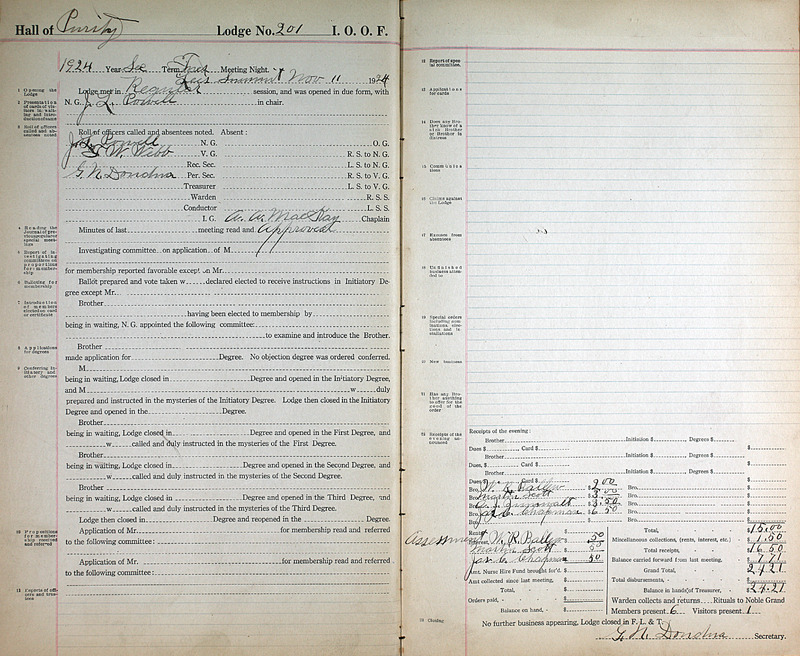 Hall of Purity Lodge No. 201 I. O. O. F.
1924 Year Term Meeting Night. Nov 11 1924
Lodge met in Regular session, and was opened in due form, with
N. G. J. L. Powell in chair.
Roll of officers called and absentees noted. Absent:
Powell N. G. O. G.
W. Webb V. G. R. S. to N. G.
Rec. Sec. L. S. to N. G.
G. N. Donoho Per. Sec. R. S. to V. G.
Treasurer L. S. to V. G.
Warden R. S. S.
Conductor L. S. S.
I. G. A. A. MacKay Chaplain
Minutes of last meeting read and approved
Investigating committee on application of M
for membership reported favorable except on Mr.
Ballot prepared and vote taken w declared elected to receive instructions in Initiatory De-
gree except Mr.
Brother
having been elected to membership by
being in waiting, N. G. appointed the following committee:
to examine and introduce the Brother.
Brother
made application for Degree. No objection degree was ordered conferred.
M
being in waiting, Lodge closed in Degree and opened in the Initiatory Degree,
and M w duly
prepared and instructed in the mysteries of the Initiatory Degree. Lodge then closed in the Initiatory
Degree and opened in the Degree.
Brother
being in waiting, Lodge closed in Degree and opened in the First Degree, and
w called and duly instructed in the mysteries of the First Degree.
Brother
being in waiting, Lodge closed in Degree and opened in the Second Degree, and
w called and duly instructed in the mysteries of the Second Degree.
Brother
being in waiting, Lodge closed in Degree and opened in the Third Degree, and
w called and duly instructed in the mysteries of the Third Degree.
Lodge then closed in Degree and reopened in the Degree.
Application of Mr. for membership read and referred
to the following committee:
Application of Mr. for membership read and referred
to the following committee:
1 Opening the Lodge
4 Reading the Journal of previous
6 Balloting for membership
8 Applications for degrees
9 Conferring Initiatory and other degrees
10 Propositions for membership received and referred
12 Report of special committee.
13 Applications for cards
14 Does any Brother know of a sick Brother or Brother in distress
15 Communications
16 Claims against the Lodge
17 Excuses from absentees
18 Unfinished business attended to
19 Special orders including nominations, elections and installations
20 New business
21 Has any Brother anything to offer for the good of the order
22 Receipts of the evening announced
Receipts of the evening:
Brother Initiation $ Degrees $
Dues $ Card $ $
Brother Initiation $ Degrees $
Dues, $ Card $ $
Brother Initiation $ Degrees $
Dues $ Card $ $
Bro. W. R. Ballew $ 2.00 Bro.
Bro. Martin Scott $ 3.00 Bro.
Bro. $ 3.50 Bro.
Bro. Jas C. Chapman $ 6.50 Bro.
Rents Total, $ 15.00
assessment W. R. Ballew 50 Miscellaneous collections, (rents, interest, etc.) $ 1.50
Martin Scott 50 Total receipts, $ 16.50
Jas C. Chapman 50 Balance carried forward from last meeting, $ 7.71
Amt. Nurse Hire Fund brought for'd. $ Grand Total, $ 24.21
Amt collected since last meeting, $ Total disbursements, $
Total, $ Balance in hands of Treasurer, $ 24.21
Orders paid, $ Warden collects and returns Rituals to Noble Grand
Balance on hand, $ Members present 6 Visitors present 1
23 Closing No further business appearing, Lodge closed in F. L. & T.
G. N. Donoho Secretary.